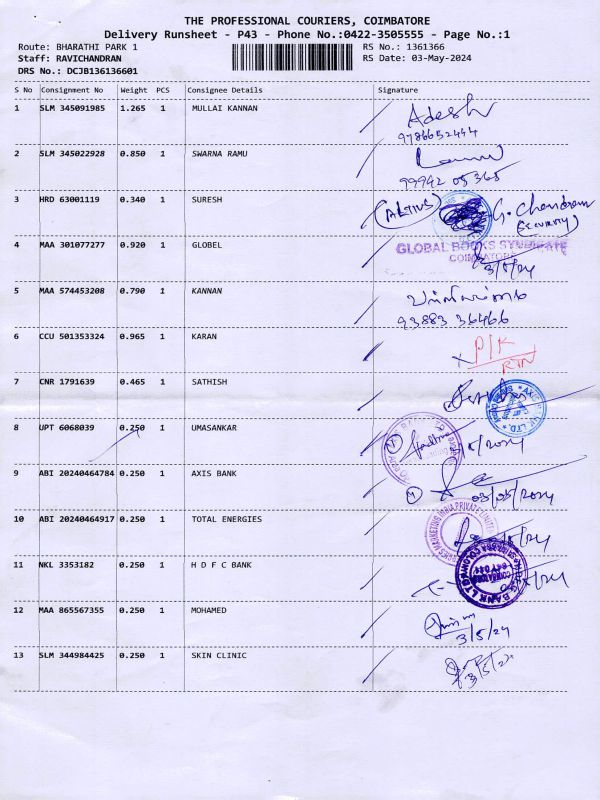 THE PROFESSIONAL COURIERS, COIMBATORE
Delivery Runsheet - P43 - Phone No.:0422-3505555 - Page No.:1
Route: BHARATHI PARK 1 RS No.: 1361366
Staff: RAVICHANDRAN RS Date: 03-May-2024
DRS No.: DCJB136136601
S No Consignment No Weight PCS Consignee Details Signature
1 SLM 345091985 1.265 1 MULLAI KANNAN Adesh
9786652444
2 SLM 345022928 0.850 1 SWARNA RAMU
99942 05365
3 HRD 63001119 0.340 1 SURESH G. Chandran
(SECURITY)
4 MAA 301077277 0.920 1 GLOBEL GLOBAL BOOKS SYNDICATE
COIMBATORE
3/5/24
5 MAA 574453208 0.790 1 KANNAN
93883 36466
6 CCU 501353324 0.965 1 KARAN P/K
RTN
7 CNR 1791639 0.465 1 SATHISH
8 UPT 6068039 0.250 1 UMASANKAR
9 ABI 20240464784 0.250 1 AXIS BANK
03/05/2024
10 ABI 20240464917 0.250 1 TOTAL ENERGIES
11 NKL 3353182 0.250 1 H D F C BANK
12 MAA 865567355 0.250 1 MOHAMED
3/5/24
13 SLM 344984425 0.250 1 SKIN CLINIC
3/5/24